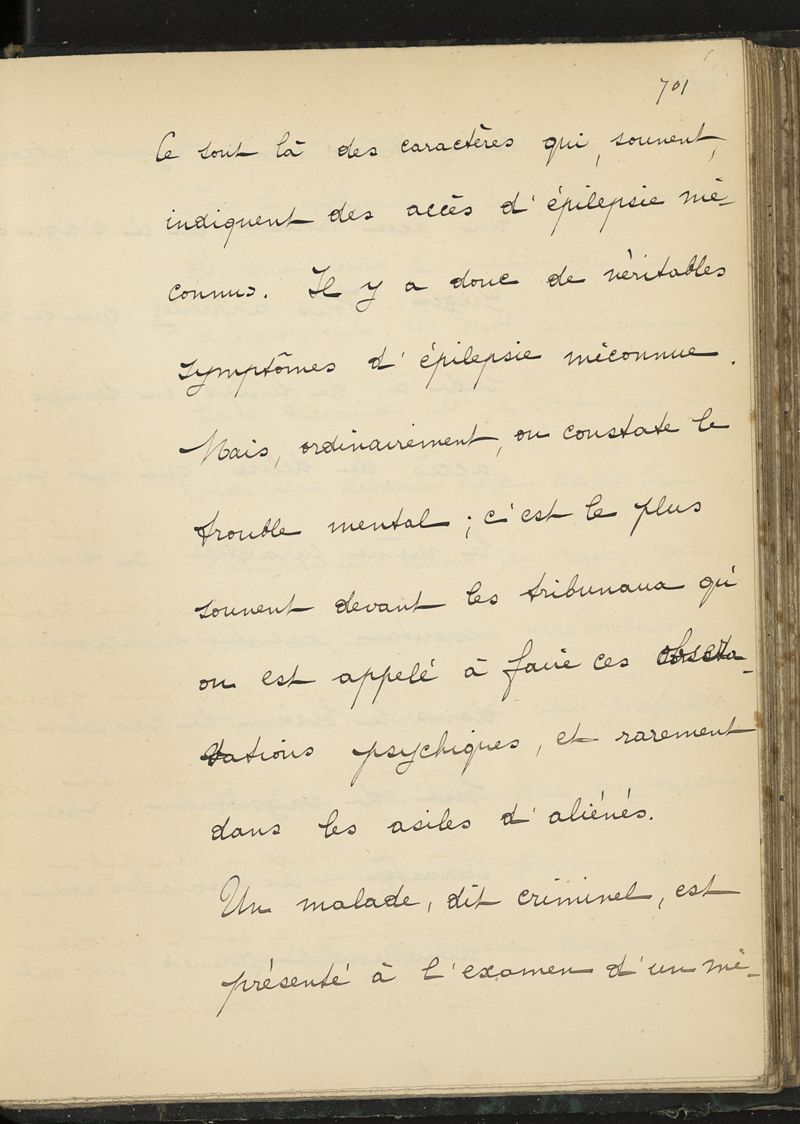 701
Ce sont là des caractères qui, souvent,
indiquent des accès d'épilepsie mé-
connus. Il y a donc de véritables
symptômes d'épilepsie méconnue.
Mais, ordinairement, on constate le
trouble mental ; c'est le plus
souvent devant les tribunaux qu'
on est appelé à faire ces observa-
tations psychiques, et rarement
dans les asiles d'aliénés.
Un malade, dit criminel, est
présenté à l'examen d'un mé-